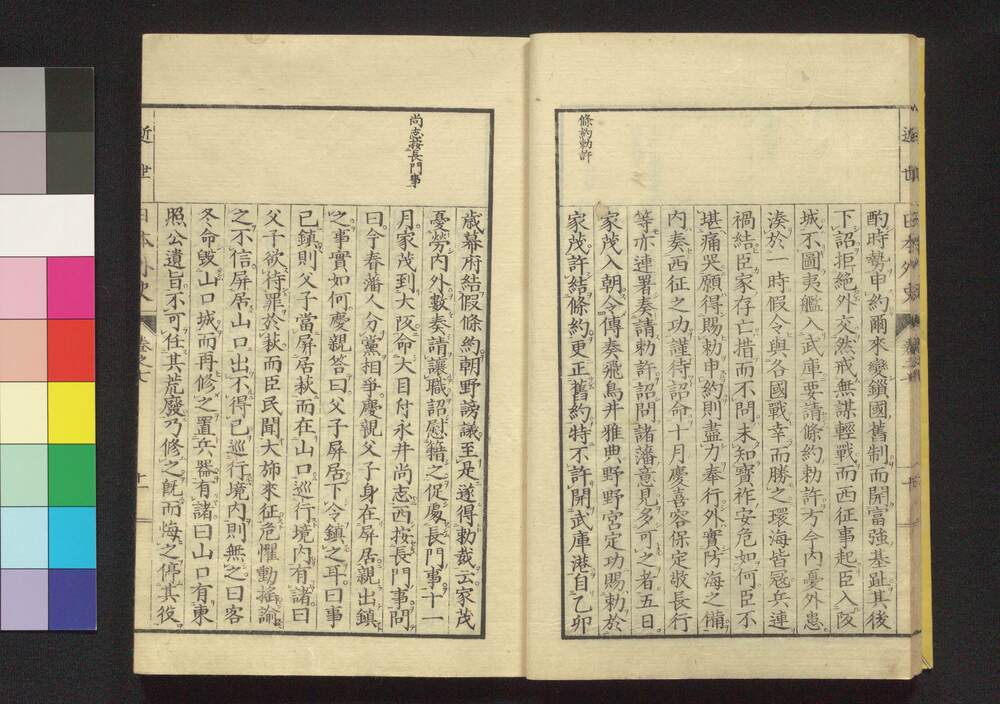 條約勅許
酌時勢申約爾來變鎖國舊制而開富強基趾其後
下詔拒絕外交然戒無謀輕戰而西征事起臣入阪
城不圖夷艦入武庫要請條約勅許方今內憂外患
湊於一時假令與各國戰幸而勝之環海皆冦兵連
禍結臣家存亡措而不問未知寶祚安危如何臣不
堪痛哭願得賜勅申約則盡力奉行外實防海之備
內奏西征之功謹待詔命十月慶喜容保定敬長行
等亦連署奏請勅許詔問諸藩意見多可之者五日
家茂入朝令傳奏飛鳥井雅典野野宮定功賜勅於
家茂許結條約更正舊約特不許開武庫港自乙卯
尚志按長門事
歲幕府結假條約朝野謗議至是遂得勅裁云家茂
憂勞內外數奏請讓職詔慰籍之促處長門事十一
月家茂到大阪命大目付永井尚志西按長門事問
曰今春藩人分黨相爭慶親父子身在屏居親出鎮
之事實如何慶親答曰父子屏居下令鎮之耳曰事
已鎮則父子當屏居萩而在山口巡行境內有諸曰
父子欲待罪於萩而臣民聞大斾來征危懼動搖諭
之不信屏居山口出不得已巡行境內則無之曰客
冬命毀山口城而再修之置兵器有諸曰山口有東
照公遺旨不可任其荒廢乃修之既而悔之停其役
近世
日本外史
卷之七
十一